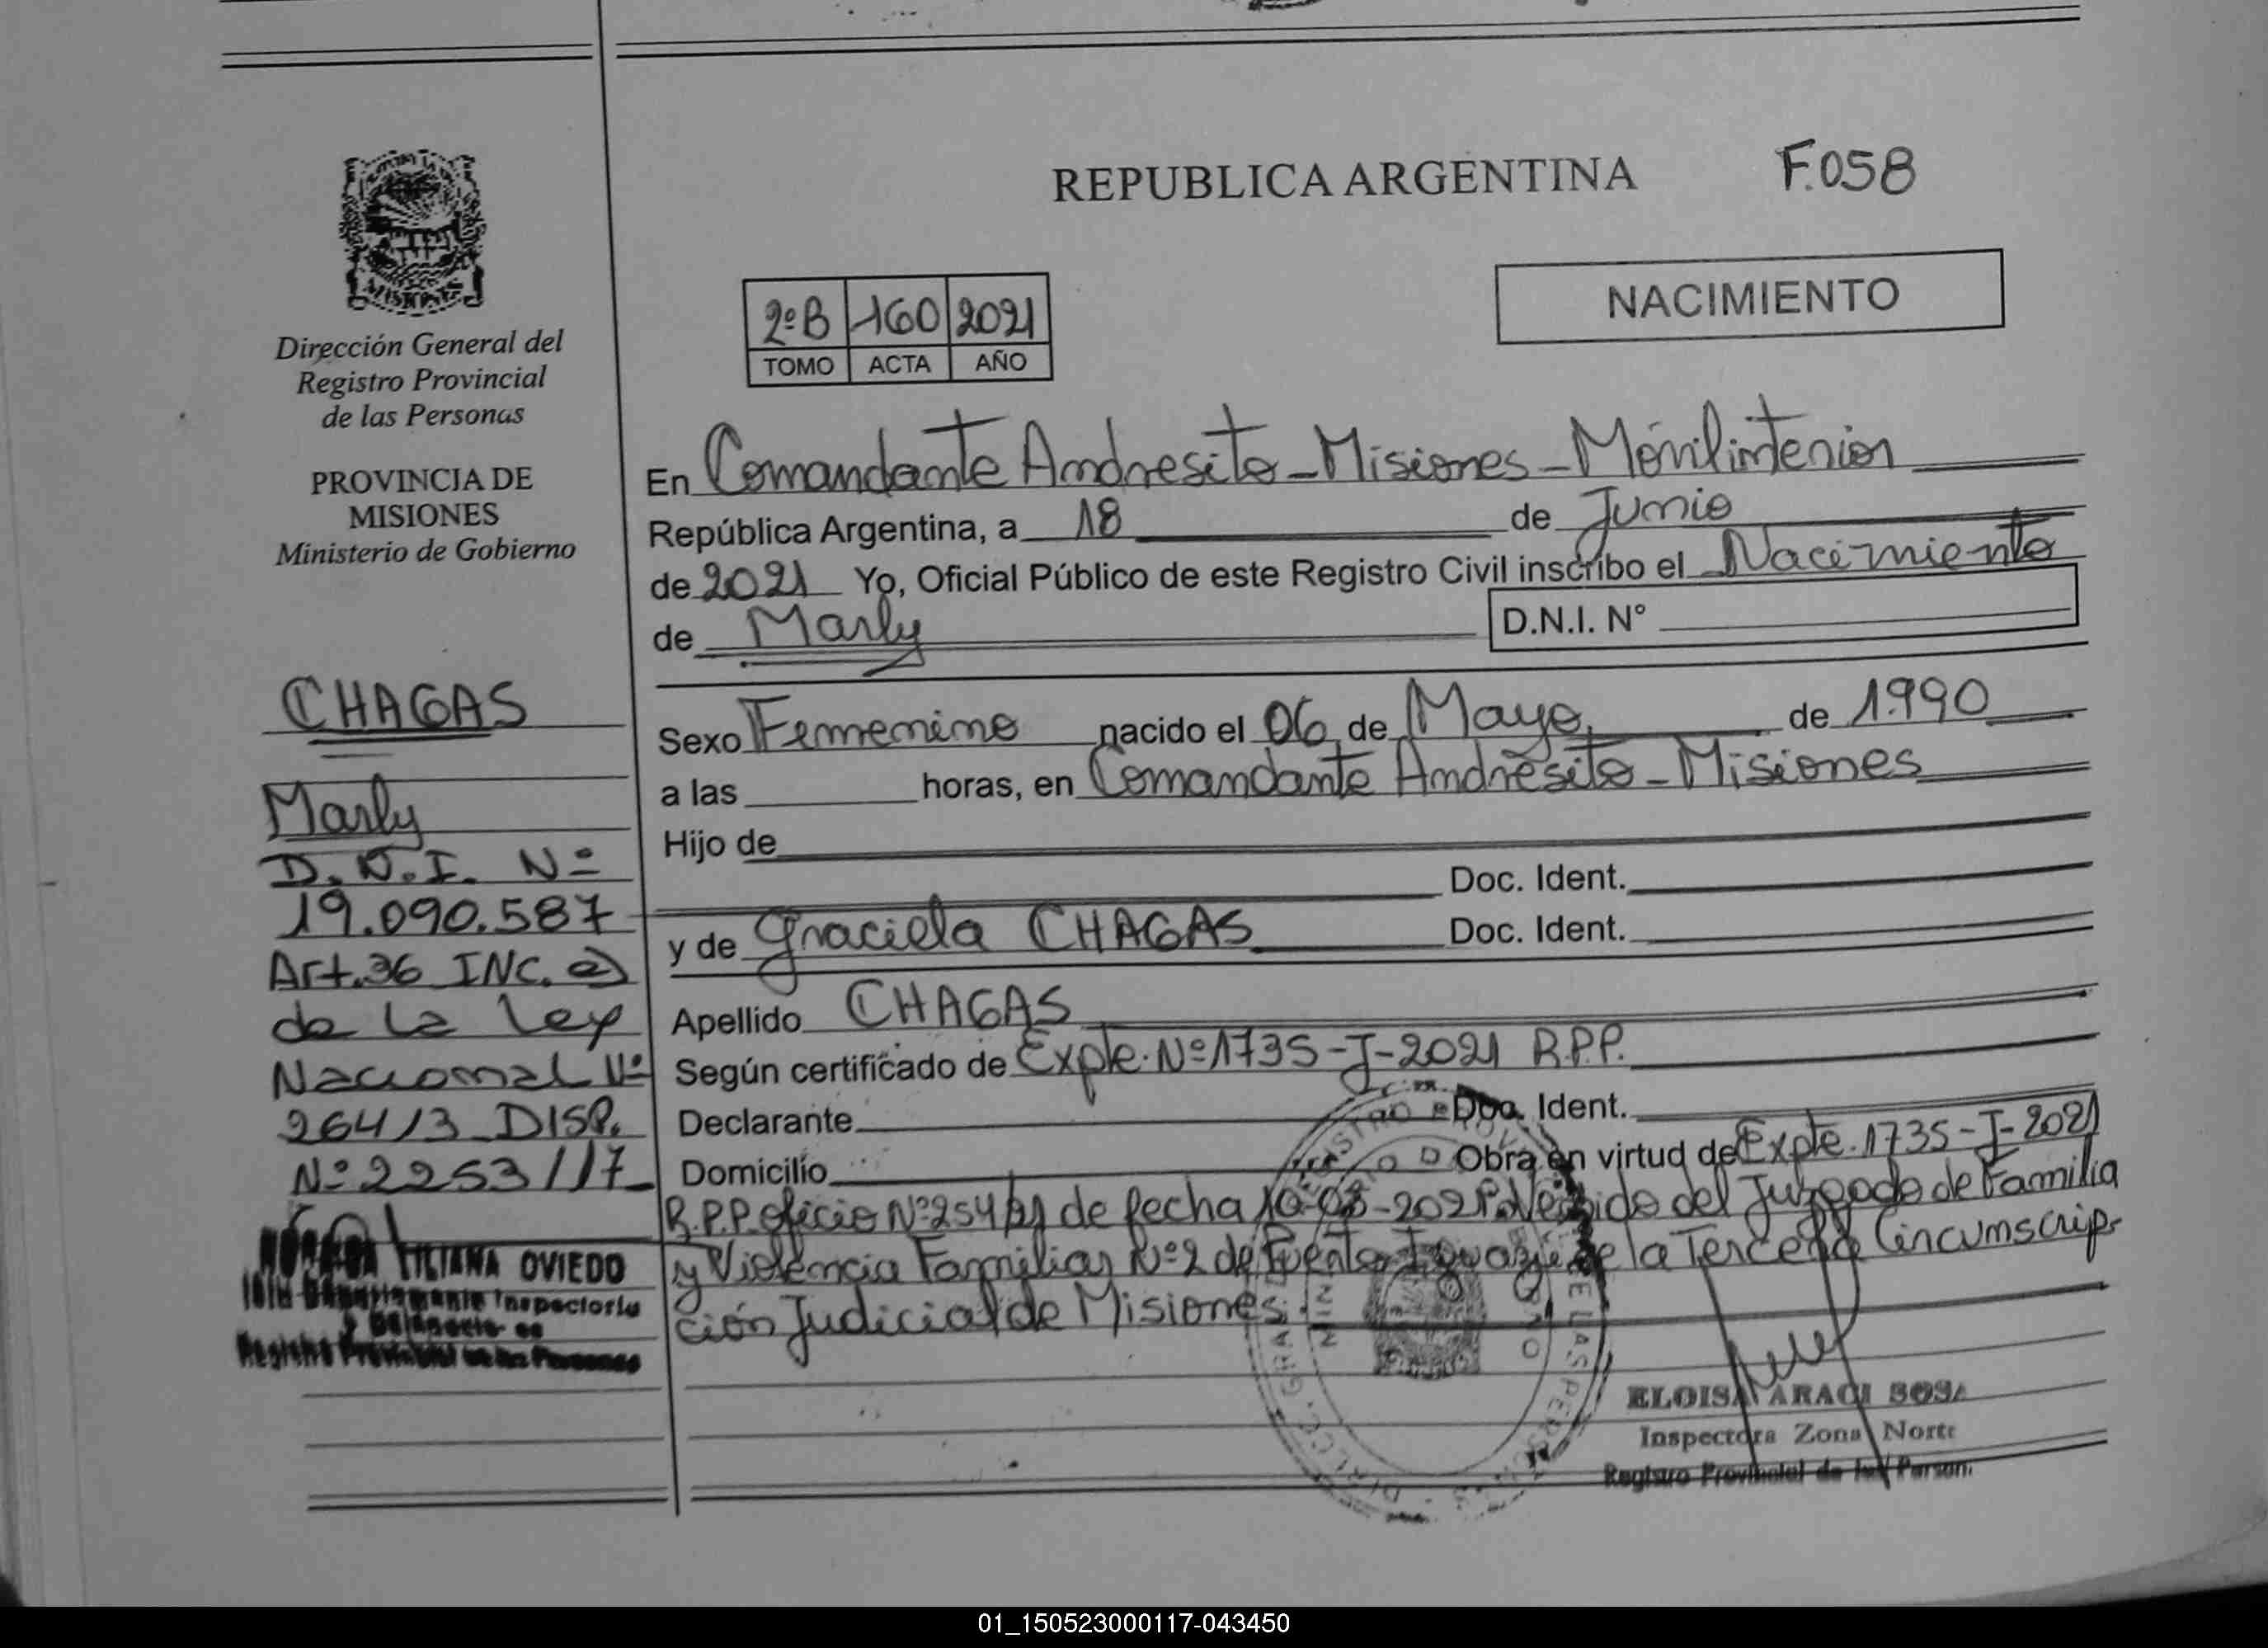 REPUBLICA ARGENTINA
F.058
MISIONES
Dirección General del
Registro Provincial
de las Personas
PROVINCIA DE
MISIONES
Ministerio de Gobierno
2º B 160 2021
TOMO ACTA AÑO
NACIMIENTO
En Comandante Andresito - Misiones - Móvil interior
República Argentina, a 18 de Junio
de 2021 Yo, Oficial Público de este Registro Civil inscribo el Nacimiento
de Marly D.N.I. N°
Sexo Femenino nacido el 06 de Mayo de 1.990
a las horas, en Comandante Andresito - Misiones
Hijo de
Doc. Ident.
y de Graciela CHAGAS Doc. Ident.
Apellido CHAGAS
Según certificado de Expte. Nº 1735-J-2021 R.P.P.
Declarante Doc. Ident.
Domicilio Obra en virtud de Expte. 1735-J-2021
R.P.P. oficio Nº 254/21 de fecha del Juzgado de Familia
y Violencia Familiar Nº 2 de Puerto Iguazú de la Tercera Circunscrip-
ción Judicial de Misiones.
CHAGAS
Marly
D.N.I. Nº
19.090.587
Art. 36 INC. a)
de la Ley
Nacional Nº
26413 DISP.
Nº 2253/17
LILIANA OVIEDO
ELOISA ARACI SOSA
Inspectora Zona Norte
Registro Provincial de las Person.
01_150523000117-043450